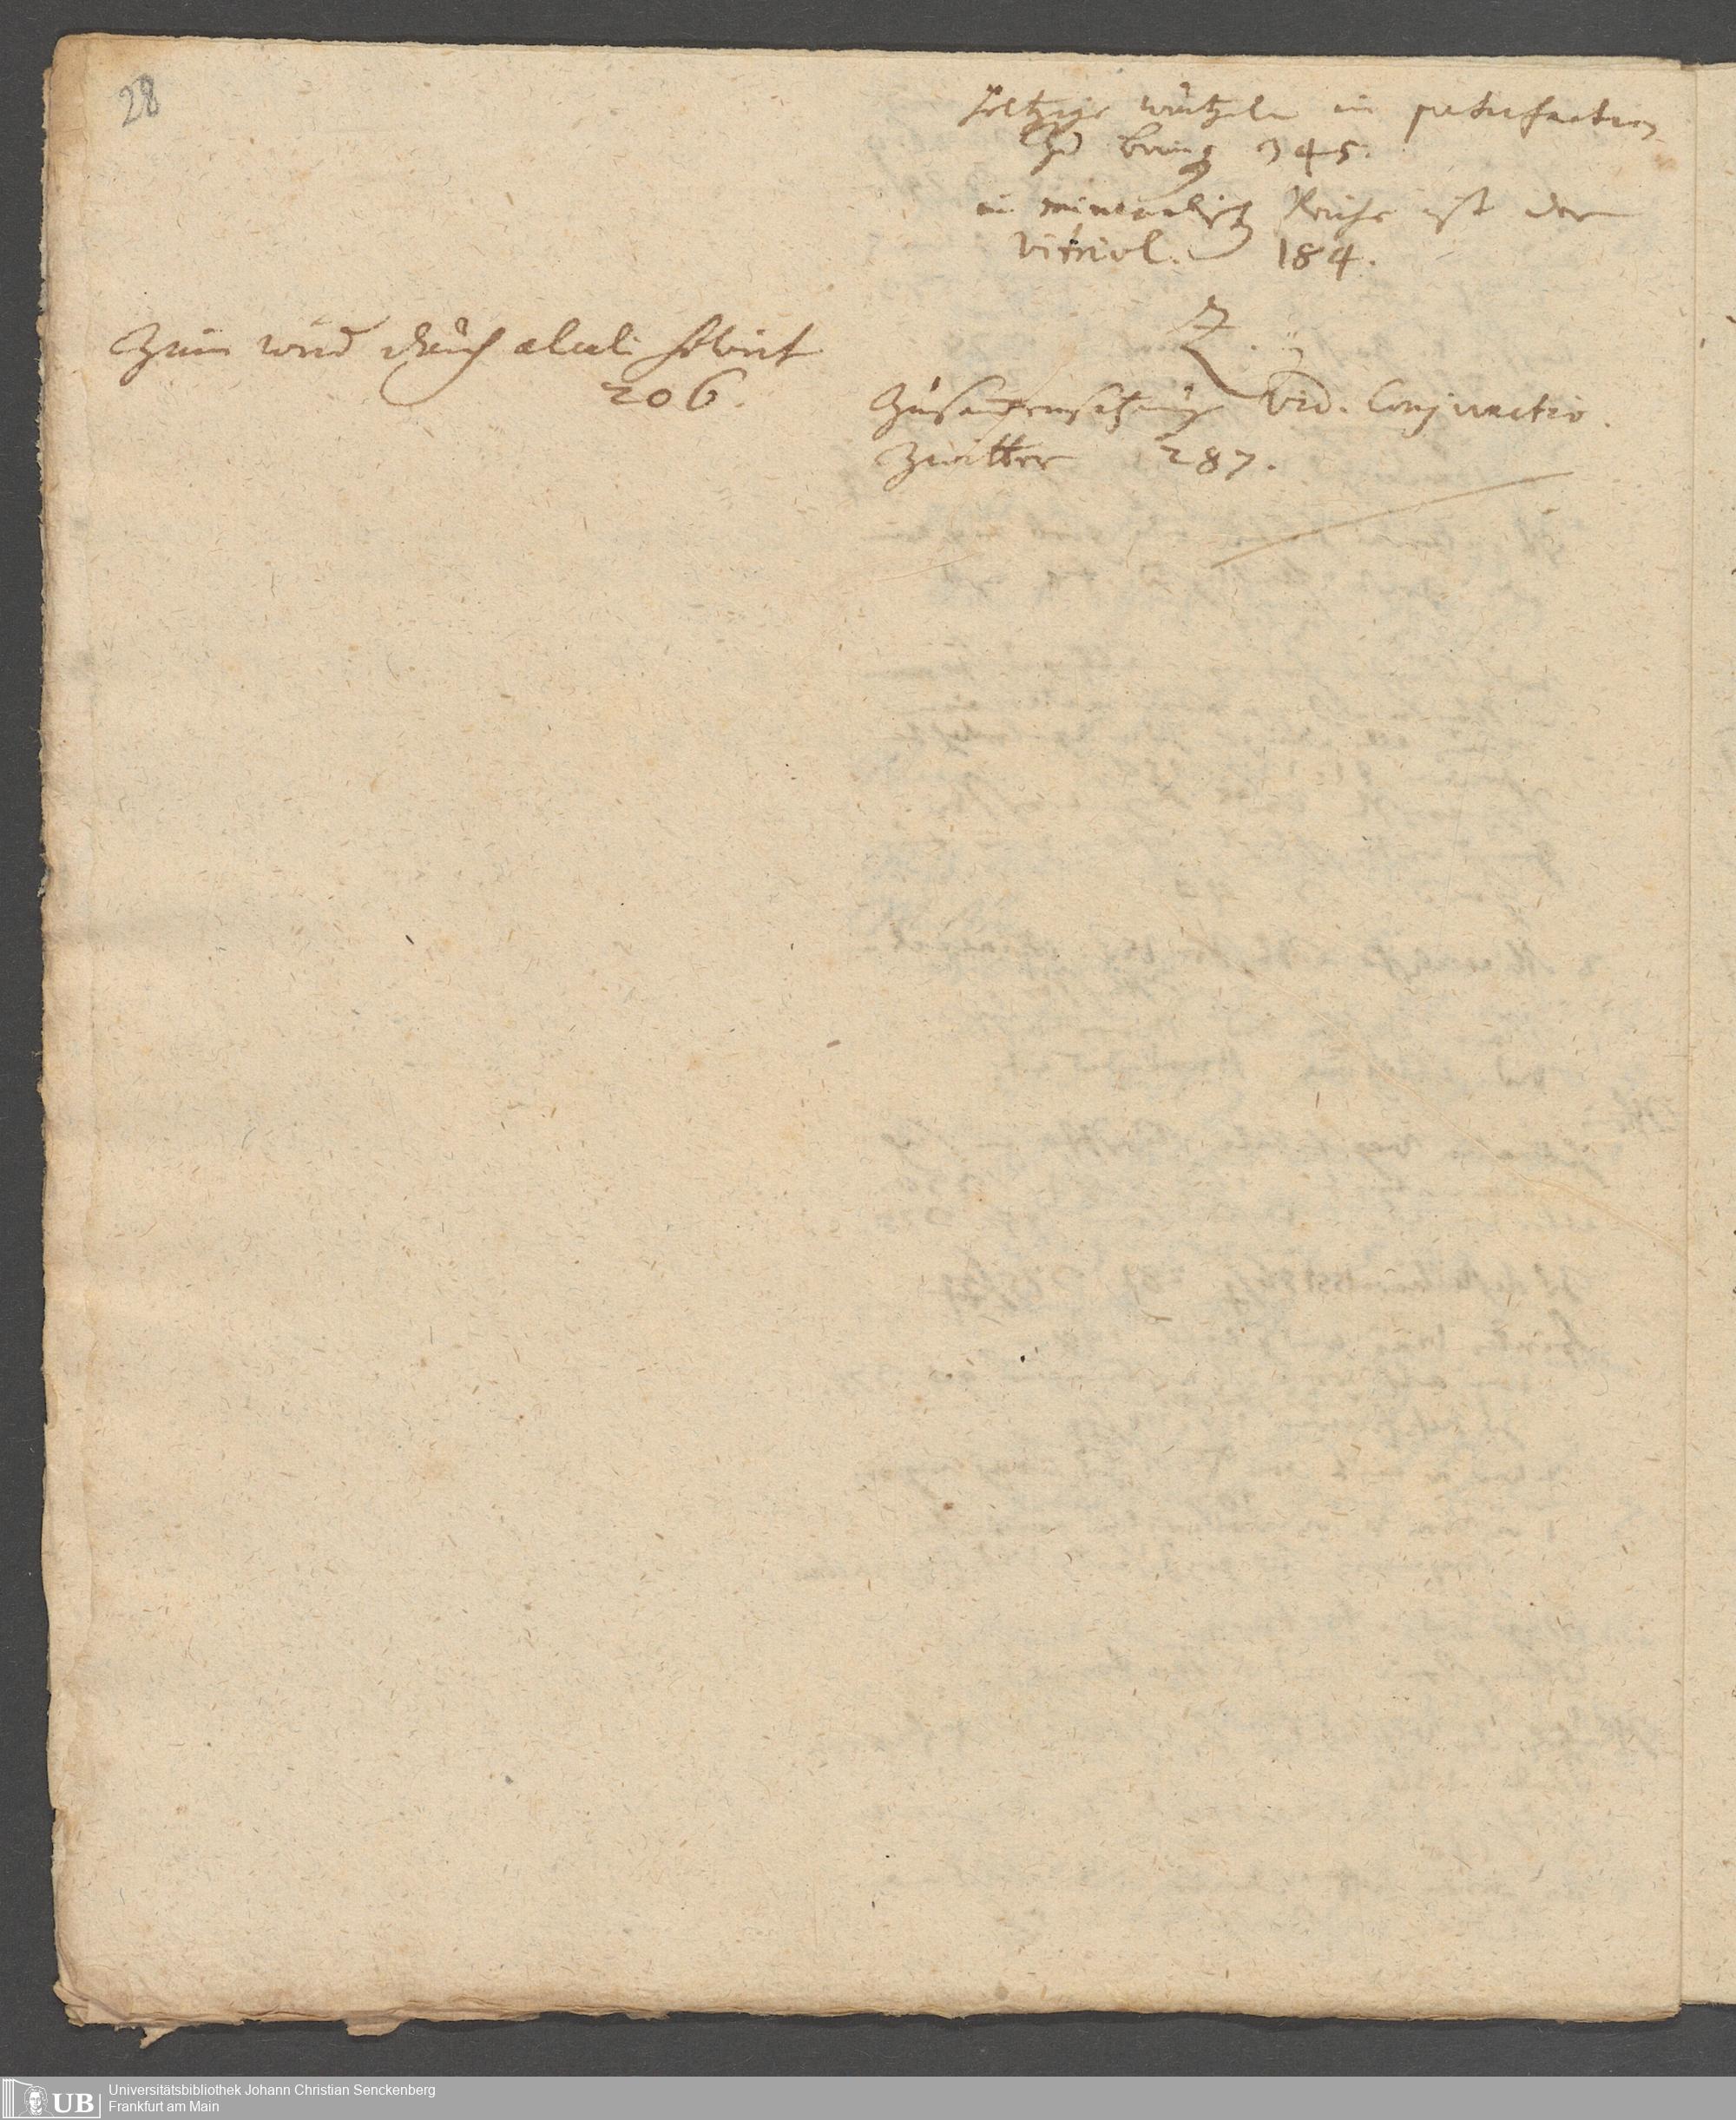 28
holtzige wurtzeln in putrefaction
Zu bring 345.
im mineralisch Reiche ist der
Vitriol. 184.
Z.
Zinn wird durch alcali solvirt
206.
Zusammensetzung vid. Conjunctio.
Zwitter 287.
UB Universitätsbibliothek Johann Christian Senckenberg
Frankfurt am Main